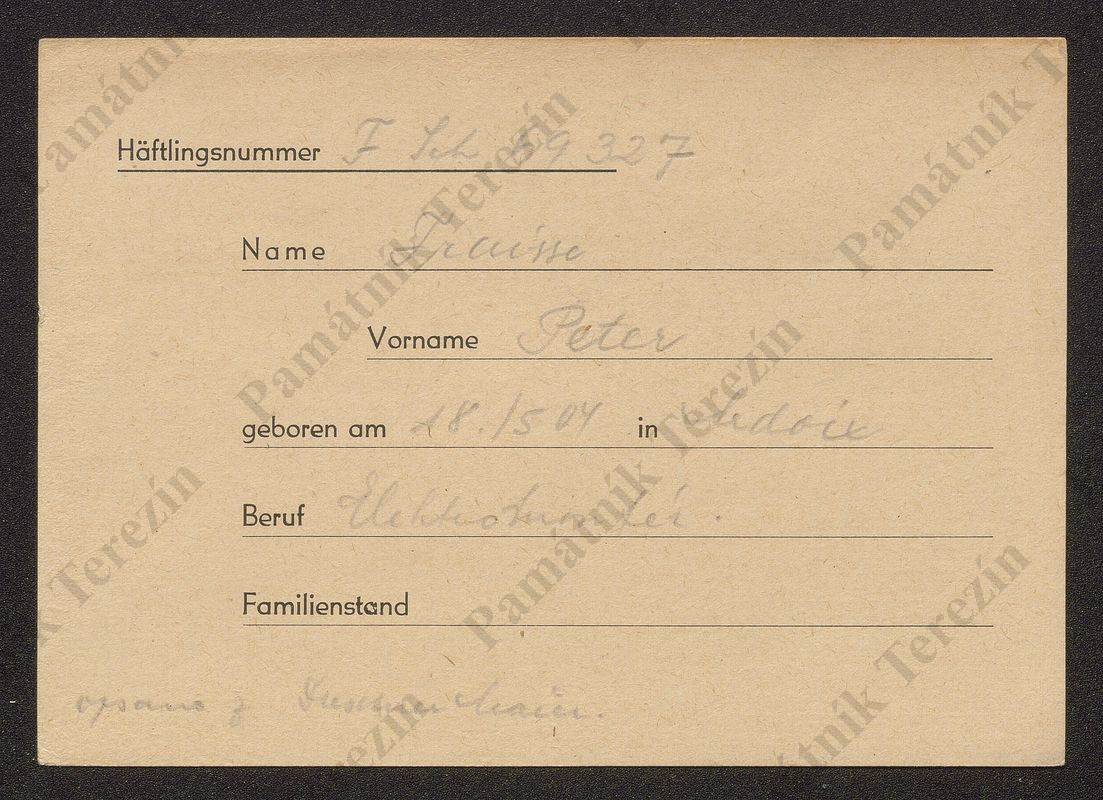 Häftlingsnummer F Sch 59327
Name Fraisse
Vorname Peter
geboren am 18./5 04 in
Beruf Elektromontér.
Familienstand
opsano z
Památník Terezín